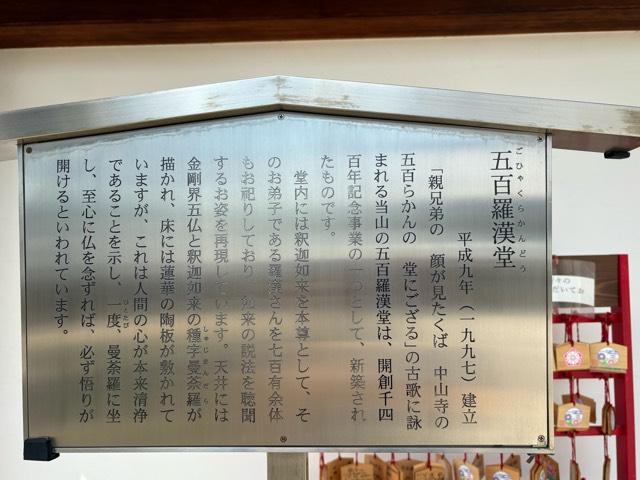 五百羅漢堂
ごひゃくらかんどう
平成九年（一九九七）建立
「親兄弟の　顔が見たくば　中山寺の
五百らかんの　堂にござる」の古歌に詠
まれる当山の五百羅漢堂は、開創千四
百年記念事業の一つとして、新築され
たものです。
堂内には釈迦如来を本尊として、そ
のお弟子である羅漢さんを七百有余体
もお祀りしており、如来の説法を聴聞
するお姿を再現しています。天井には
金剛界五仏と釈迦如来の種字曼荼羅が
しゅじまんだら
描かれ、床には蓮華の陶板が敷かれて
いますが、これは人間の心が本来清浄
であることを示し、一度、曼荼羅に坐
ひとたび
し、至心に仏を念ずれば、必ず悟りが
開けるといわれています。